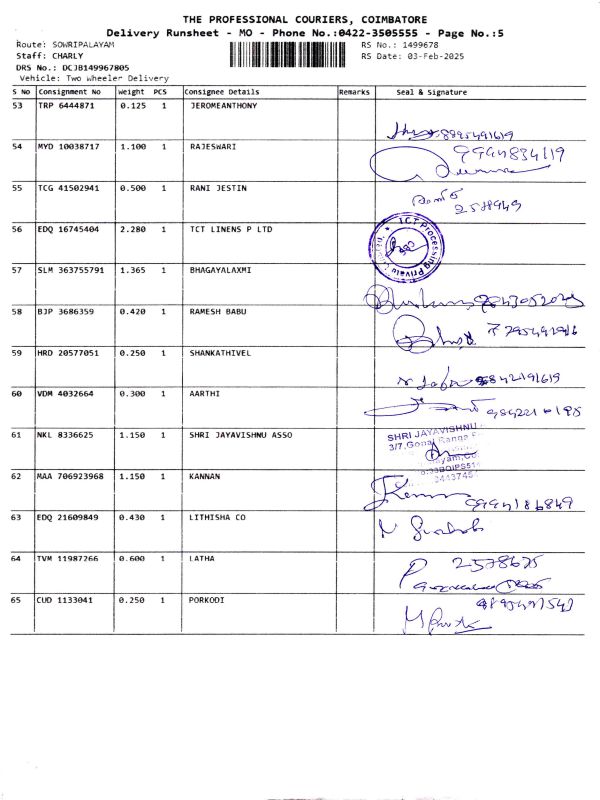 THE PROFESSIONAL COURIERS, COIMBATORE
Delivery Runsheet - MO - Phone No.:0422-3505555 - Page No.:5
Route: SOWRIPALAYAM RS No.: 1499678
Staff: CHARLY RS Date: 03-Feb-2025
DRS No.: DCJB149967805
Vehicle: Two Wheeler Delivery
S No Consignment No Weight PCS Consignee Details Remarks Seal & Signature
53 TRP 6444871 0.125 1 JEROMEANTHONY
8895491619
54 MYD 10038717 1.100 1 RAJESWARI
9994834119
55 TCG 41502941 0.500 1 RANI JESTIN
2578949
56 EDQ 16745404 2.280 1 TCT LINENS P LTD
57 SLM 363755791 1.365 1 BHAGAYALAXMI
58 BJP 3686359 0.420 1 RAMESH BABU
59 HRD 20577051 0.250 1 SHANKATHIVEL
9842191619
60 VDM 4032664 0.300 1 AARTHI
61 NKL 8336625 1.150 1 SHRI JAYAVISHNU ASSO
SHRI JAYAVISHNU
62 MAA 706923968 1.150 1 KANNAN
9994186849
63 EDQ 21609849 0.430 1 LITHISHA CO
64 TVM 11987266 0.600 1 LATHA
2578675
65 CUD 1133041 0.250 1 PORKODI